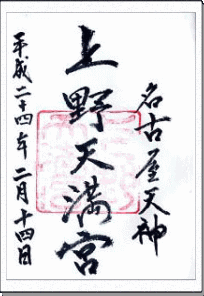 名古屋天神
上野天満宮
平成二十四年二月十四日